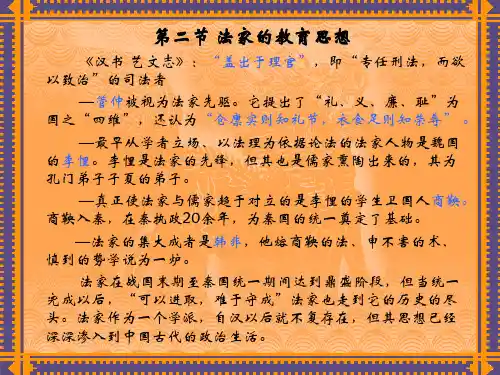 第二节 法家的教育思想
《汉书 艺文志》：“盖出于理官”，即“专任刑法，而欲
以致治”的司法者
—管仲被视为法家先驱。它提出了“礼、义、廉、耻”为
国之“四维”，还认为“仓廪实则知礼节，衣食足则知荣辱”。
—最早从学者立场、以法理为依据论法的法家人物是魏国
的李悝。李悝是法家的先锋，但其也是儒家熏陶出来的，其为
孔门弟子子夏的弟子。
—真正使法家与儒家趋于对立的是李悝的学生卫国人商鞅。
商鞅入秦，在秦执政20余年，为秦国的统一奠定了基础。
—法家的集大成者是韩非，他熔商鞅的法、申不害的术、
慎到的势学说为一炉。
法家在战国末期至秦国统一期间达到鼎盛阶段，但当统一
完成以后，“可以进取，难于守成”法家也走到它的历史的尽
头。法家作为一个学派，自汉以后就不复存在，但其思想已经
深深渗入到中国古代的政治生活。